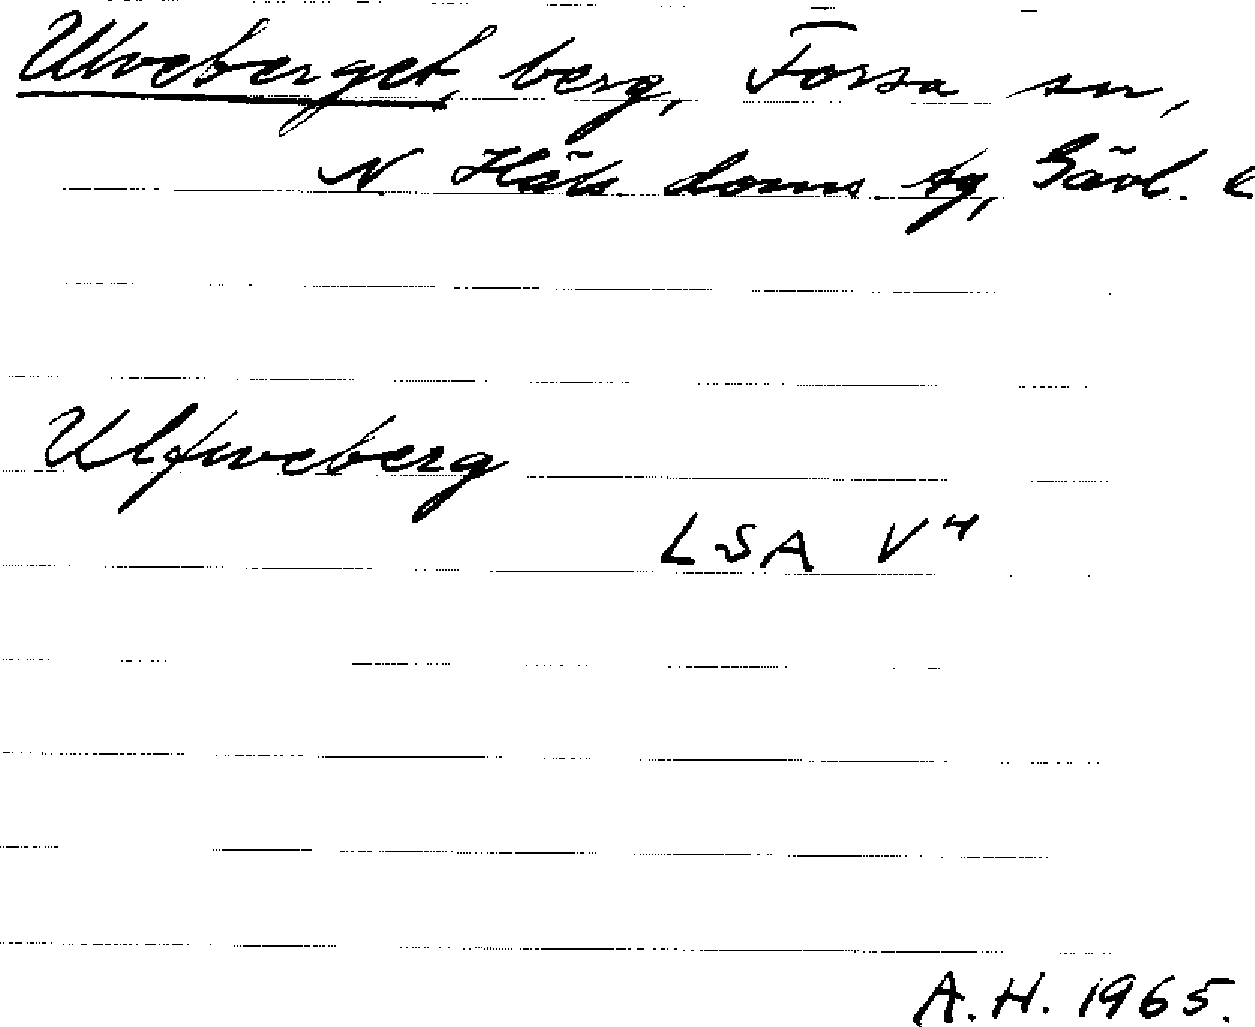 Ulveberget, berg, Forsa sn,
N. Häls. doms. sg, Gävl.
Ulfweberg
LSA V 4
A.H. 1965.